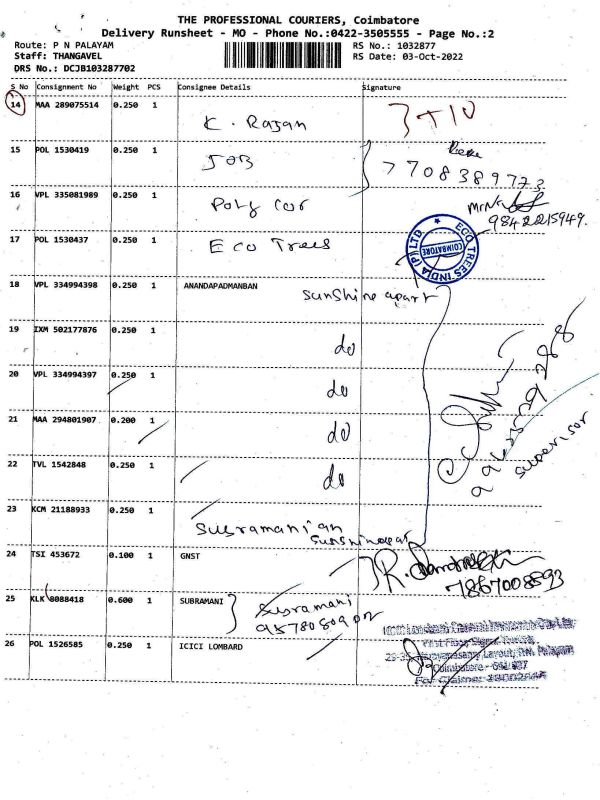 THE PROFESSIONAL COURIERS, Coimbatore
Delivery Runsheet - MO - Phone No.:0422-3505555 - Page No.:2
Route: P N PALAYAM
Staff: THANGAVEL
DRS No.: DCJB103287702
RS No.: 1032877
RS Date: 03-Oct-2022
S No Consignment No Weight PCS Consignee Details Signature
14 MAA 289075514 0.250 1 K. Rajan
15 POL 1530419 0.250 1 JOB 7708389773
16 VPL 335081989 0.250 1 Poly Cor 9842215949.
17 POL 1530437 0.250 1 Eco Trees
ECO TREES INDIA (P) LTD
COIMBATORE
18 VPL 334994398 0.250 1 ANANDAPADMANBAN Sunshine apart
19 IXM 502177876 0.250 1 do
20 VPL 334994397 0.250 1 do
21 MAA 294801907 0.200 1 do
supervisor
22 TVL 1542848 0.250 1 do
23 KCM 21188933 0.250 1 Subramanian
Sunshine apar
24 TSI 453672 0.100 1 GNST
7867008593
25 KLK 8088418 0.600 1 SUBRAMANI Subramani
26 POL 1526585 0.250 1 ICICI LOMBARD